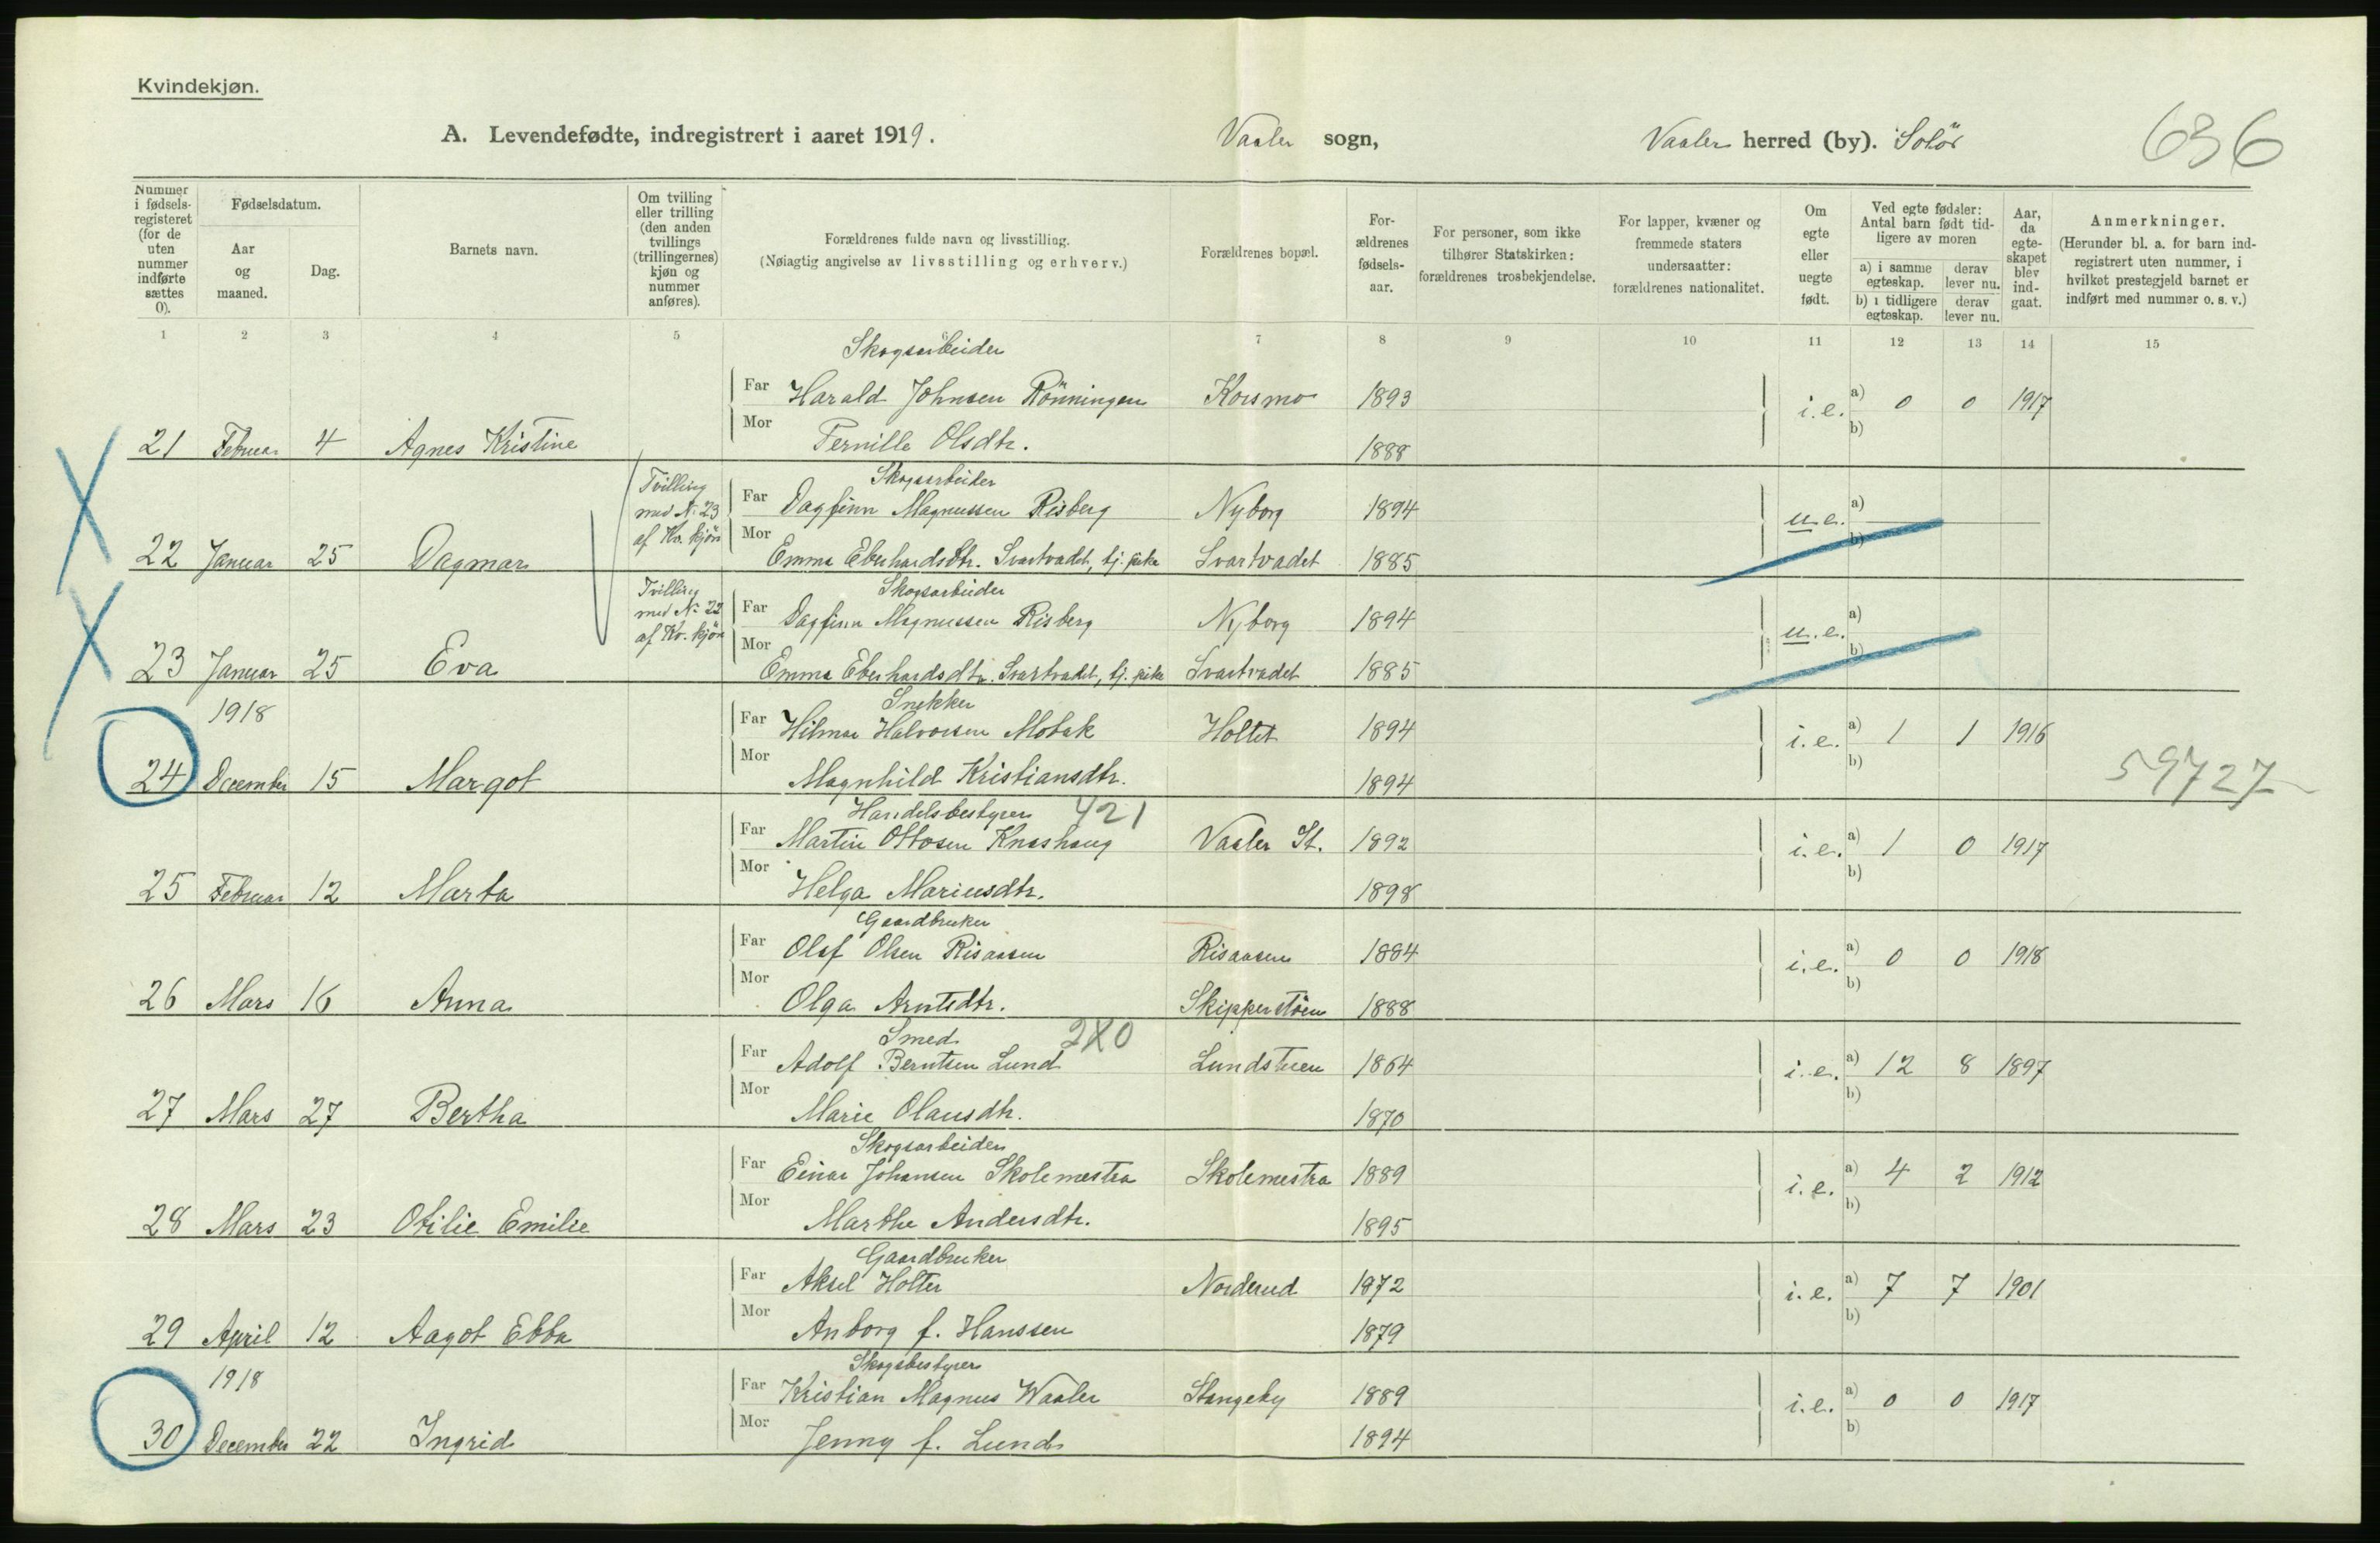 Kvindekjøn.
A. Levendefødte, indregistrert i aaret 1919. Vaaler sogn, Vaaler herred (by). Solör 636
Nummer i fødsels-registeret (for de uten nummer indførte sættes 0).
Fødselsdatum.
Aar og maaned.
Dag.
Barnets navn.
Om tvilling eller trilling (den anden tvillings (trillingernes) kjøn og nummer anføres).
Forældrenes fulde navn og livsstilling.
(Nøiagtig angivelse av livsstilling og erhverv.)
Forældrenes bopæl.
For-ældrenes fødsels-aar.
For personer, som ikke tilhører Statskirken: forældrenes trosbekjendelse.
For lapper, kvæner og fremmede staters undersaatter: forældrenes nationalitet.
Om egte eller uegte født.
Ved egte fødsler: Antal barn født tid-ligere av moren
a) i samme egteskap. derav lever nu.
b) i tidligere egteskap. derav lever nu.
Aar, da egte-skapet blev ind-gaat.
Anmerkninger.
(Herunder bl. a. for barn ind-registrert uten nummer, i hvilket prestegjeld barnet er indført med nummer o. s. v.)
1 2 3 4 5 6 7 8 9 10 11 12 13 14 15
Skogsarbeider
Far Harald Johnsen Rönningen Korsmo 1893 i.e. a) 0 0 1917
b)
21 Februar 4 Agnes Kristine Mor Pernille Olsdtr. 1888
Tvilling med N. 23 af Kv. kjön
Skogsarbeider
Far Dagfinn Magnussen Risberg Nyborg 1894 u.e. a)
b)
22 Januar 25 Dagmar Mor Emma Eberhardsdtr. Svartvadet, tj. pike Svartvadet 1885
Tvilling med N. 22 af Kv. kjön
Skogsarbeider
Far Dagfinn Magnussen Risberg Nyborg 1894 u.e. a)
b)
23 Januar 25 Eva Mor Emma Eberhardsdtr. Svartvadet, tj. pike Svartvadet 1885
1918 Snekker
Far Hilmar Halvorsen Mobak Holtet 1894 i.e. a) 1 1 1916
b)
24 December 15 Margot Mor Magnhild Kristiansdtr. 1894 59727
Handelsbestyrer 421
Far Martin Ottosen Knashaug Vaaler St. 1892 i.e. a) 1 0 1917
b)
25 Februar 12 Marta Mor Helga Mariusdtr. 1898
Gaardbruker
Far Olaf Olsen Risaasen Risaasen 1884 i.e. a) 0 0 1918
b)
26 Mars 16 Anna Mor Olga Arntsdtr. Skipperstöen 1888
Smed 280
Far Adolf Berntsen Lund Lundstuen 1864 i.e. a) 12 8 1897
b)
27 Mars 27 Bertha Mor Marie Olausdtr. 1870
Skogsarbeider
Far Einar Johansen Skolemestra Skolemestra 1889 i.e. a) 4 2 1912
b)
28 Mars 23 Otilie Emilie Mor Marthe Andersdtr. 1895
Gaardbruker
Far Aksel Holter Norderud 1872 i.e. a) 7 7 1901
b)
29 April 12 Aagot Ebba Mor Anborg f. Hanssen 1879
1918 Skogsbestyrer
Far Kristian Magnus Waaler Stangeby 1889 i.e. a) 0 0 1917
b)
30 December 22 Ingrid Mor Jenny f. Lund 1894